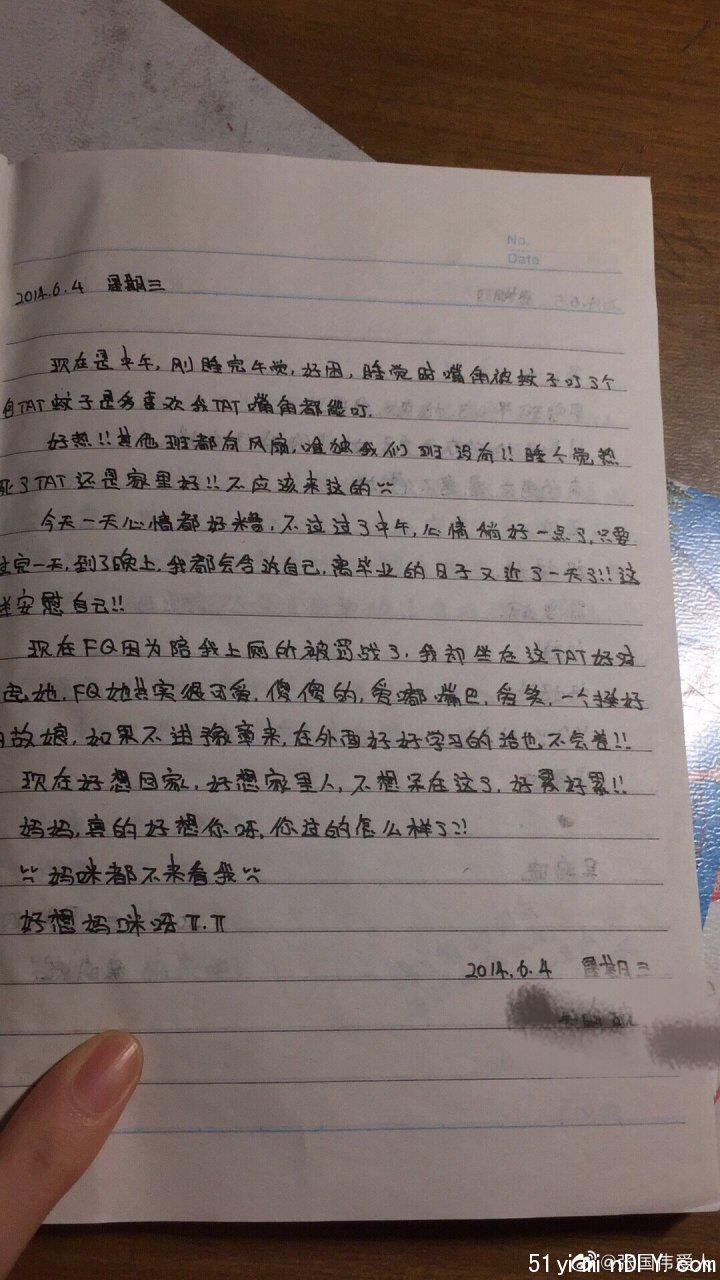 No.
Date
2014.6.4 星期三
现在是中午,刚睡完午觉,好困,睡觉时嘴角被蚊子叮了个
TAT蚊子是多喜欢我TAT嘴角都能叮.
好热!!其他班都有风扇,唯独我们班没有!!睡个觉热
死了TAT还是家里好!!不应该来这的
今天一天心情都好糟,不过过了中午,心情稍好一点了,只要
完一天,到了晚上,我都会告诉自己,离毕业的日子又近了一天了!!这
样安慰自己!!
现在FQ因为陪我上厕所被罚战了,我却坐在这TAT好对
起她,FQ她其实很可爱,傻傻的,爱嘟嘴巴,爱笑,一个挺好
故娘,如果不进豫章来,在外面好好学习的话也不会差!!
现在好想回家,好想家里人,不想呆在这了,好累好累!!
妈妈,真的好想你呀,你过的怎么样了?!
妈咪都不来看我
好想妈咪呀π.π
2014.6.4 星期三
@张国伟爱人
51yiminDIY.com